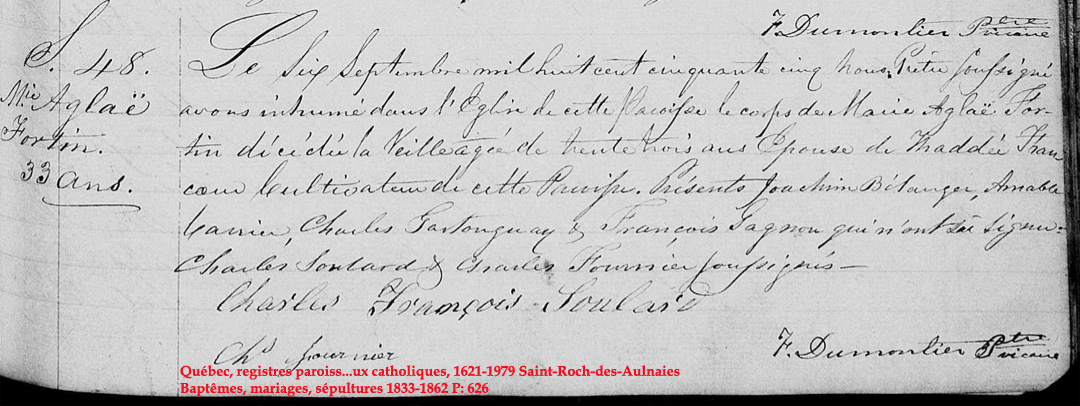 F. Dumontier Ptre Vicaire
S. 48.
Mie Aglaë
Fortin.
33 ans.
Le Six Septembre mil huit cent cinquante cinq Nous, Prêtre soussigné
avons inhumé dans l'Eglise de cette Paroisse le corps de Marie Aglaë For-
tin décédée la Veille agée de trente trois ans Epouse de Thaddée Fran
cœur Cultivateur de cette Paroisse. Présents Joachim Bélanger, Amable
Carrier, Charles Gastonguay & François Gagnon qui n'ont sû signer-
Charles Soulard & Charles Fournier soussignés—
Charles François Soulard
Chs fournier
F. Dumontier Ptre Vicaire
Québec, registres paroiss...ux catholiques, 1621-1979 Saint-Roch-des-Aulnaies
Baptêmes, mariages, sépultures 1833-1862 P: 626